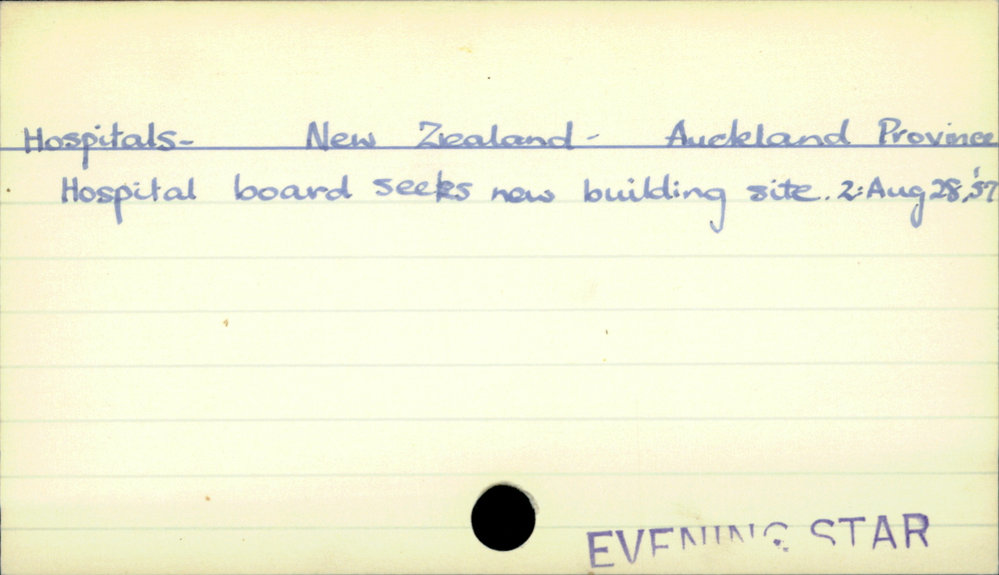 Hospitals- New Zealand- Auckland Province
Hospital board seeks new building site. 2: Aug 28, '57
EVENING STAR